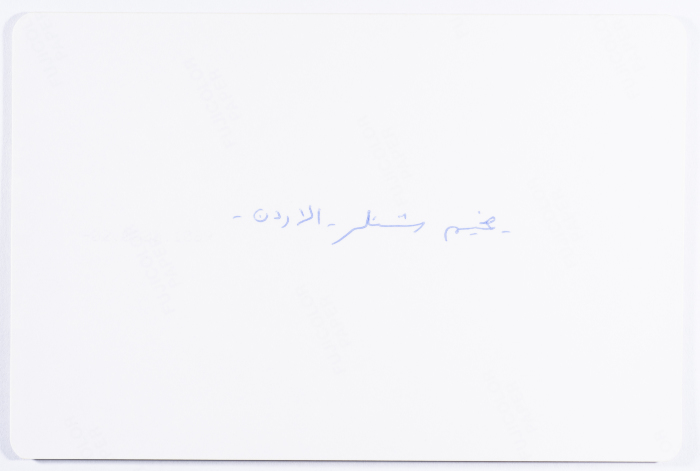 - مخيم شنلر - الاردن -